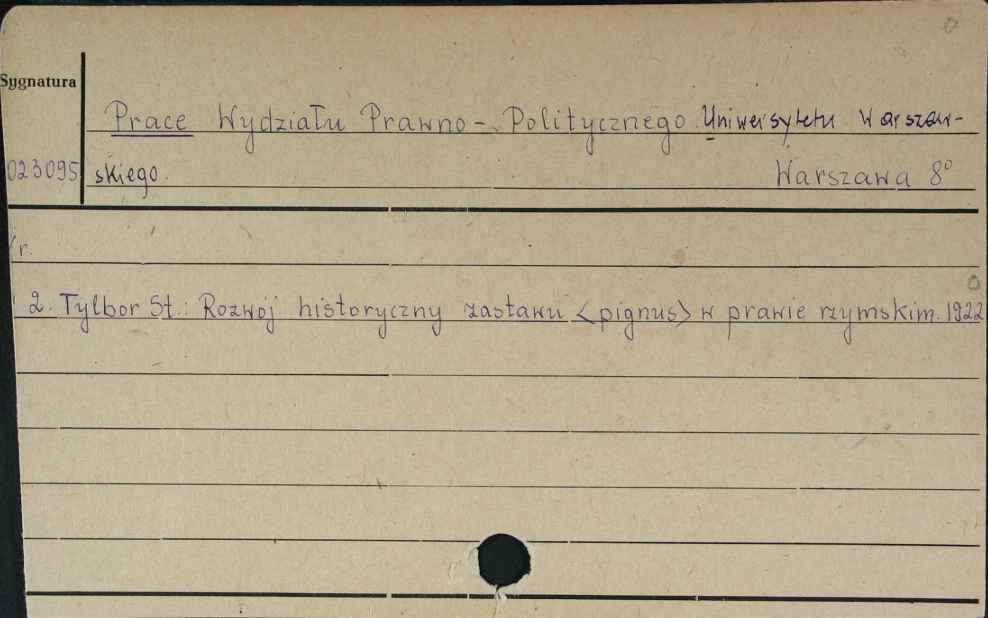 Sygnatura
Prace Wydziału Prawno-Politycznego Uniwersytetu Warszaw-
023095 skiego. Warszawa 8°
r.
2. Tylbor St.: Rozwój historyczny zastawu <pignus> w prawie rzymskim. 1922